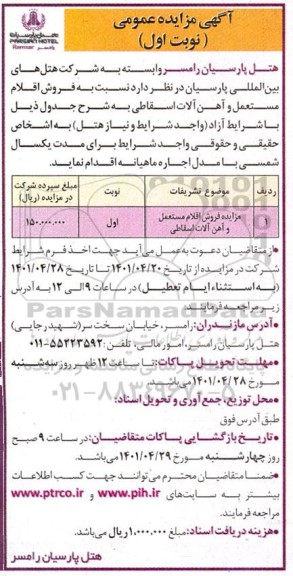 آگهی مزایده عمومی
(نوبت اول)
هتل پارسیان
PARSIAN HOTEL
رامسر
Ramsar
هتل پارسیان رامسر وابسته به شرکت هتل‌های
بین‌المللی پارسیان در نظر دارد نسبت به فروش اقلام
مستعمل و آهن آلات اسقاطی به شرح جدول ذیل
با شرایط آزاد (واجد شرایط و نیاز هتل) به اشخاص
حقیقی و حقوقی واجد شرایط برای مدت یکسال
شمسی با مدل اجاره ماهیانه اقدام نماید.
ردیف موضوع تشریفات نوبت مبلغ سپرده شرکت در مزایده (ریال)
۱ مزایده فروش اقلام مستعمل و آهن آلات اسقاطی اول ۱۵۰.۰۰۰.۰۰۰
• از متقاضیان دعوت به عمل می‌آید جهت اخذ فرم شرایط
شرکت در مزایده از تاریخ ۱۴۰۱/۰۴/۲۰ تا تاریخ ۱۴۰۱/۰۴/۲۸
(به استثناء ایام تعطیل) در ساعات ۹ الی ۱۲ به آدرس
زیر مراجعه فرمایند.
• آدرس مازندران: رامسر، خیابان سخت سر (شهید رجایی)
هتل پارسیان رامسر، امور مالی، تلفن: ۵۵۲۲۳۵۹۲-۰۱۱
• مهلت تحویل پاکات: تا ساعت ۱۲ ظهر روز سه شنبه
مورخ ۱۴۰۱/۰۴/۲۸ می‌باشد.
• محل توزیع، جمع آوری و تحویل اسناد:
طبق آدرس فوق
• تاریخ بازگشایی پاکات متقاضیان: در ساعت ۹ صبح
روز چهارشنبه مورخ ۱۴۰۱/۰۴/۲۹ می‌باشد.
• ضمنا متقاضیان محترم می‌توانند جهت کسب اطلاعات
بیشتر به سایت‌های www.pih.ir و www.ptrco.ir
مراجعه فرمایند.
• هزینه دریافت اسناد: مبلغ ۱.۰۰۰.۰۰۰ ریال می‌باشد.
هتل پارسیان رامسر